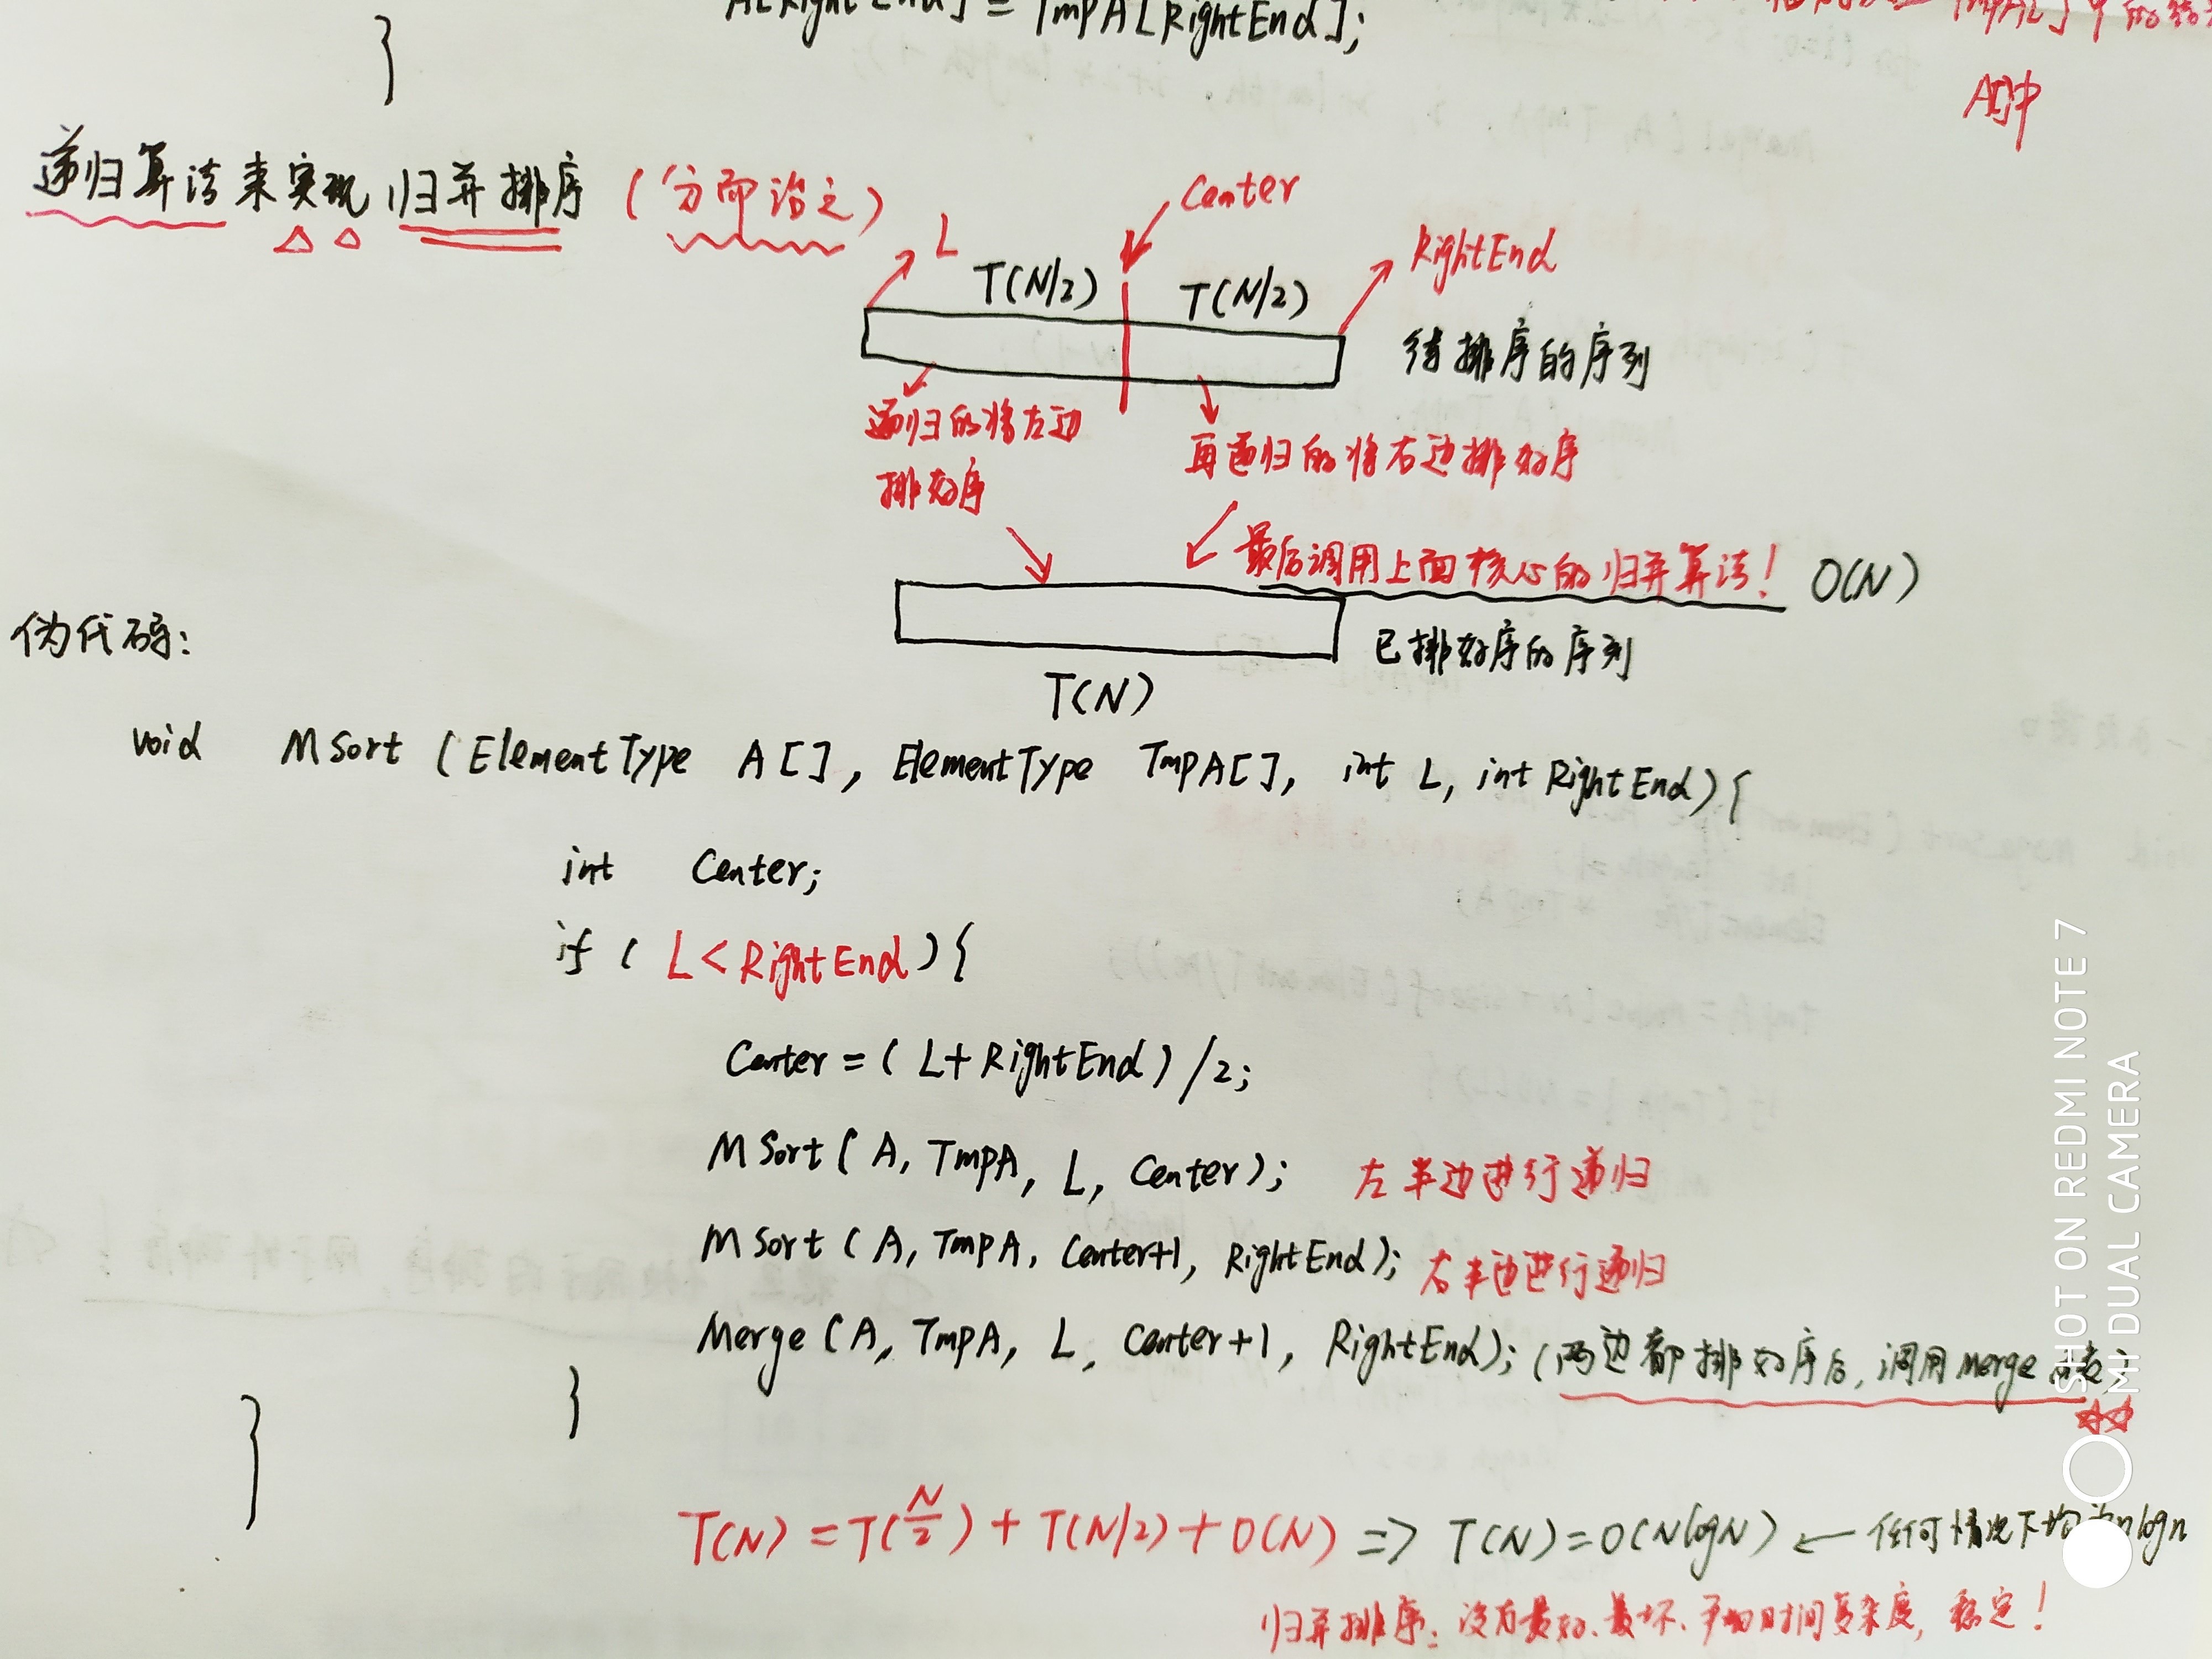 A[RightEnd] = TmpA[RightEnd];
}
A[]中
递归算法来实现归并排序 (分而治之)
L
Center
RightEnd
T(N/2) T(N/2)
待排序的序列
递归的将左边
排好序
再递归的将右边排好序
最后调用上面核心的归并算法! O(N)
已排好序的序列
T(N)
伪代码:
void MSort (ElementType A[], ElementType TmpA[], int L, int RightEnd){
int Center;
if ( L<RightEnd){
Center = ( L+RightEnd) /2;
MSort( A, TmpA, L, Center); 左半边进行递归
MSort (A, TmpA, Center+1, RightEnd); 右半边进行递归
Merge (A, TmpA, L, Center+1, RightEnd); (两边都排好序后,调用Merge
}
}
T(N) = T(N/2) + T(N/2) + O(N) => T(N)=O(NlogN) ← 任何情况下均为nlogn
归并排序: 没有最好、最坏、平均时间复杂度, 稳定!
SHOT ON REDMI NOTE 7
MI DUAL CAMERA